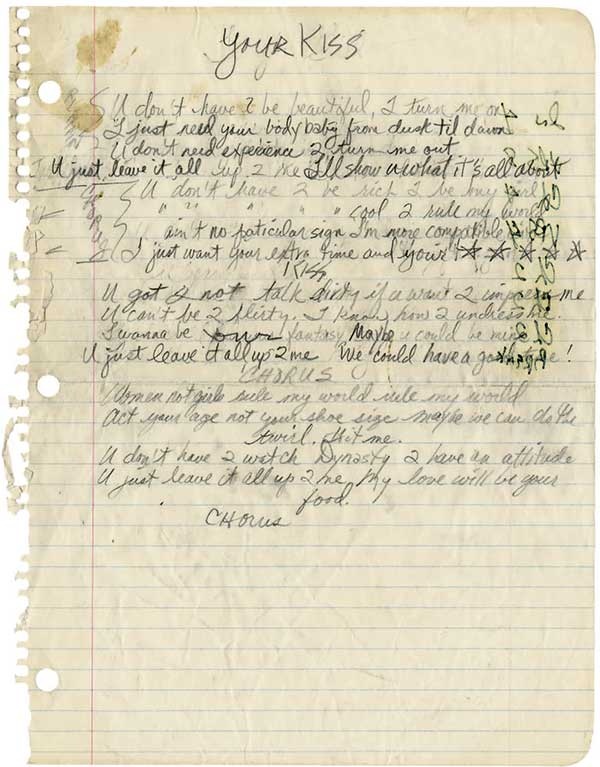 YOUR KISS
U don't have 2 be beautiful, 2 turn me on
I just need your body baby from dusk til dawn
U don't need experience 2 turn me out
U just leave it all up 2 me I'll show u what it's all about
CHORUS
U don't have 2 be rich 2 be my girl
" " " " " cool 2 rule my world
ain't no paticular sign I'm more compatible
I just want your extra time and your
Kiss
U got 2 not talk dirty if u want 2 impress me
U can't be 2 flirty. I know how 2 undress me.
I wanna be your fantasy Maybe u could be mine
U just leave it all up 2 me We could have a good time!
CHORUS
Women not girls rule my world rule my world
Act your age not your shoe size maybe we can do the
twirl. Hit me.
U don't have 2 watch Dynasty 2 have an attitude
U just leave it all up 2 me My love will be your
food.
CHORUS